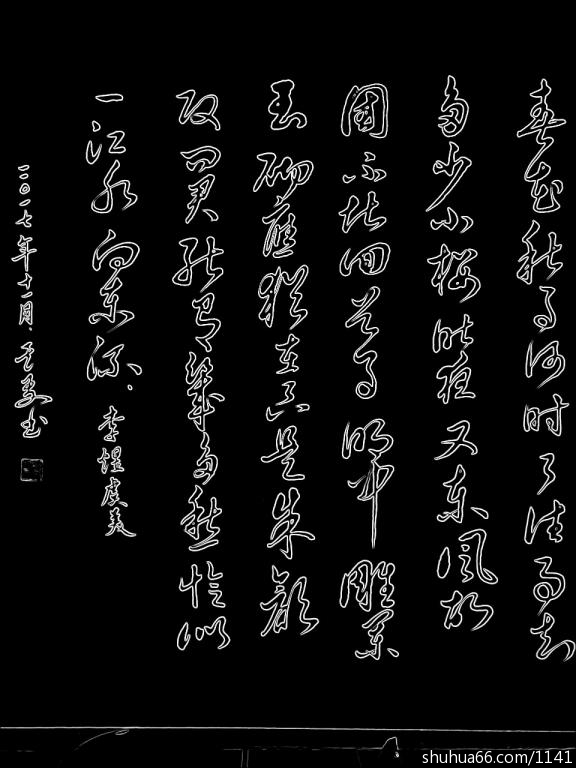 春花秋月何时了往事知
多少小楼昨夜又东風故
國不堪回首月明中雕闌
玉砌應猶在只是朱顔
改問君能有幾多愁恰似
一江水向东流、李煜虞美
二〇一七年十一月、书
shuhua66.com/1141